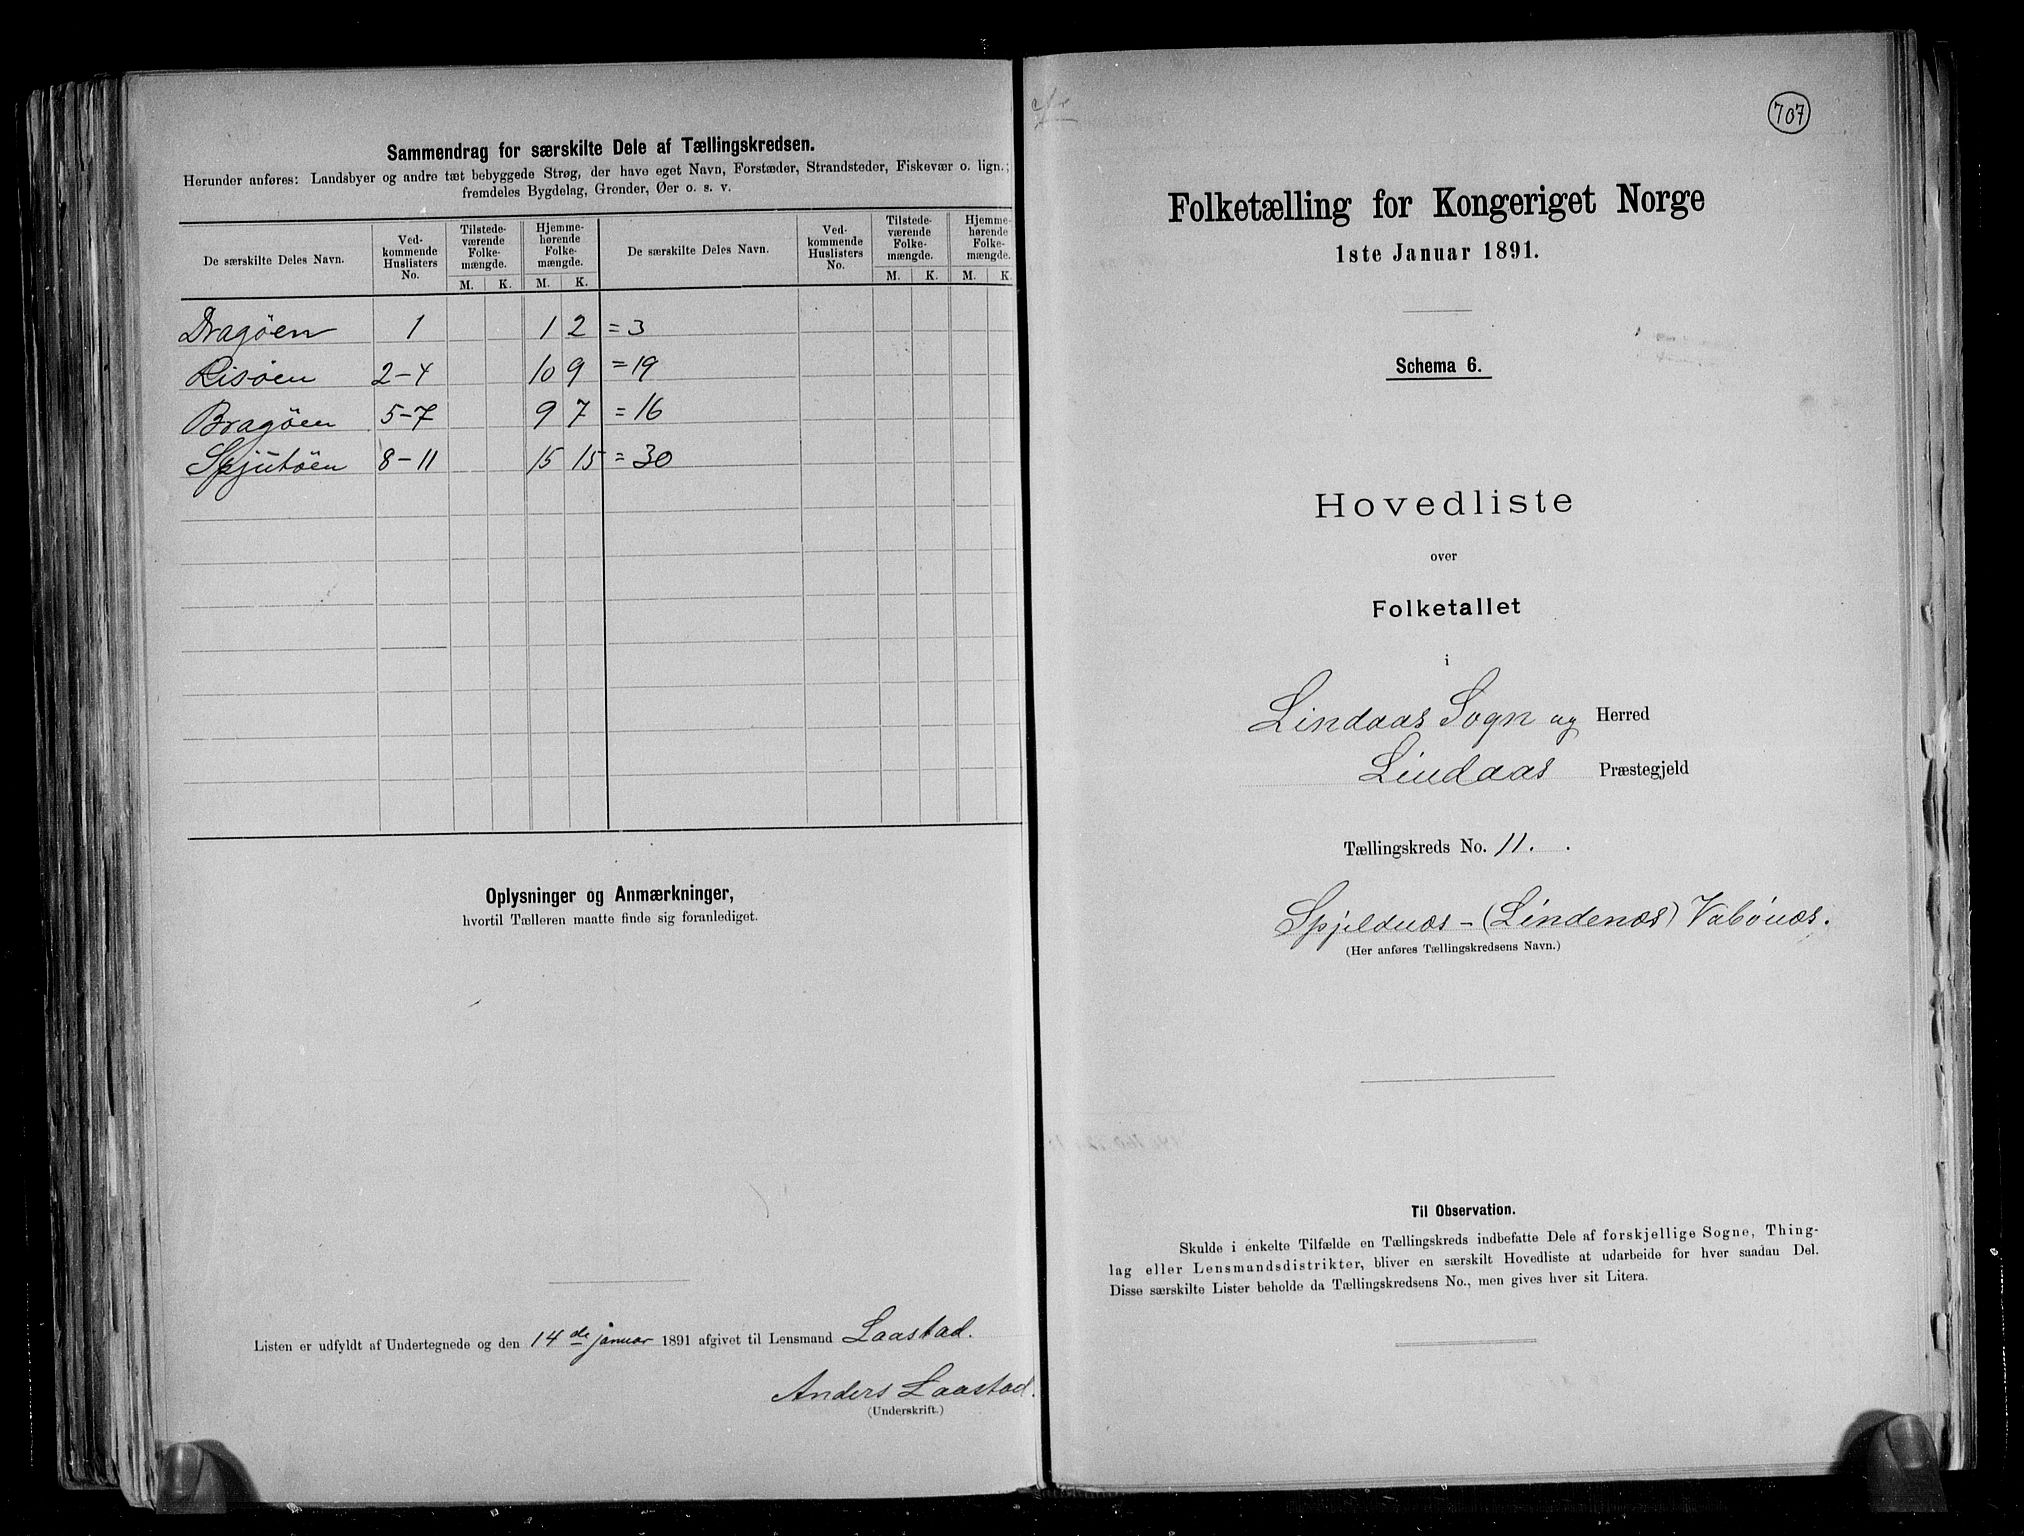 Sammendrag for særskilte Dele af Tællingskredsen.
Herunder anføres: Landsbyer og andre tæt bebyggede Strøg, der have eget Navn, Forstæder, Strandsteder, Fiskevær o. lign.;
fremdeles Bygdelag, Grender, Øer o. s. v.
De særskilte Deles Navn. Ved-kommende Huslisters No. Tilstede-værende Folke-mængde. Hjemme-hørende Folke-mængde. De særskilte Deles Navn. Ved-kommende Huslisters No. Tilstede-værende Folke-mængde. Hjemme-hørende Folke-mængde.
M. K. M. K. M. K. M. K.
Dragøen 1 1 2 = 3
Risøen 2-4 10 9 = 19
Bragøen 5-7 9 7 = 16
Spjutøen 8-11 15 15 = 30
Oplysninger og Anmærkninger,
hvortil Tælleren maatte finde sig foranlediget.
Listen er udfyldt af Undertegnede og den 14de januar 1891 afgivet til Lensmand Laastad.
Anders Laastad.
(Underskrift.)
707
Folketælling for Kongeriget Norge
1ste Januar 1891.
Schema 6.
Hovedliste
over
Folketallet
i
Lindaas Sogn og Herred
Lindaas Præstegjeld
Tællingskreds No. 11.
Spjeldnæs - (Lindenæs) Vabønæs.
(Her anføres Tællingskredsens Navn.)
Til Observation.
Skulde i enkelte Tilfælde en Tællingskreds indbefatte Dele af forskjellige Sogne, Thing-
lag eller Lensmandsdistrikter, bliver en særskilt Hovedliste at udarbeide for hver saadan Del.
Disse særskilte Lister beholde da Tællingskredsens No., men gives hver sit Litera.